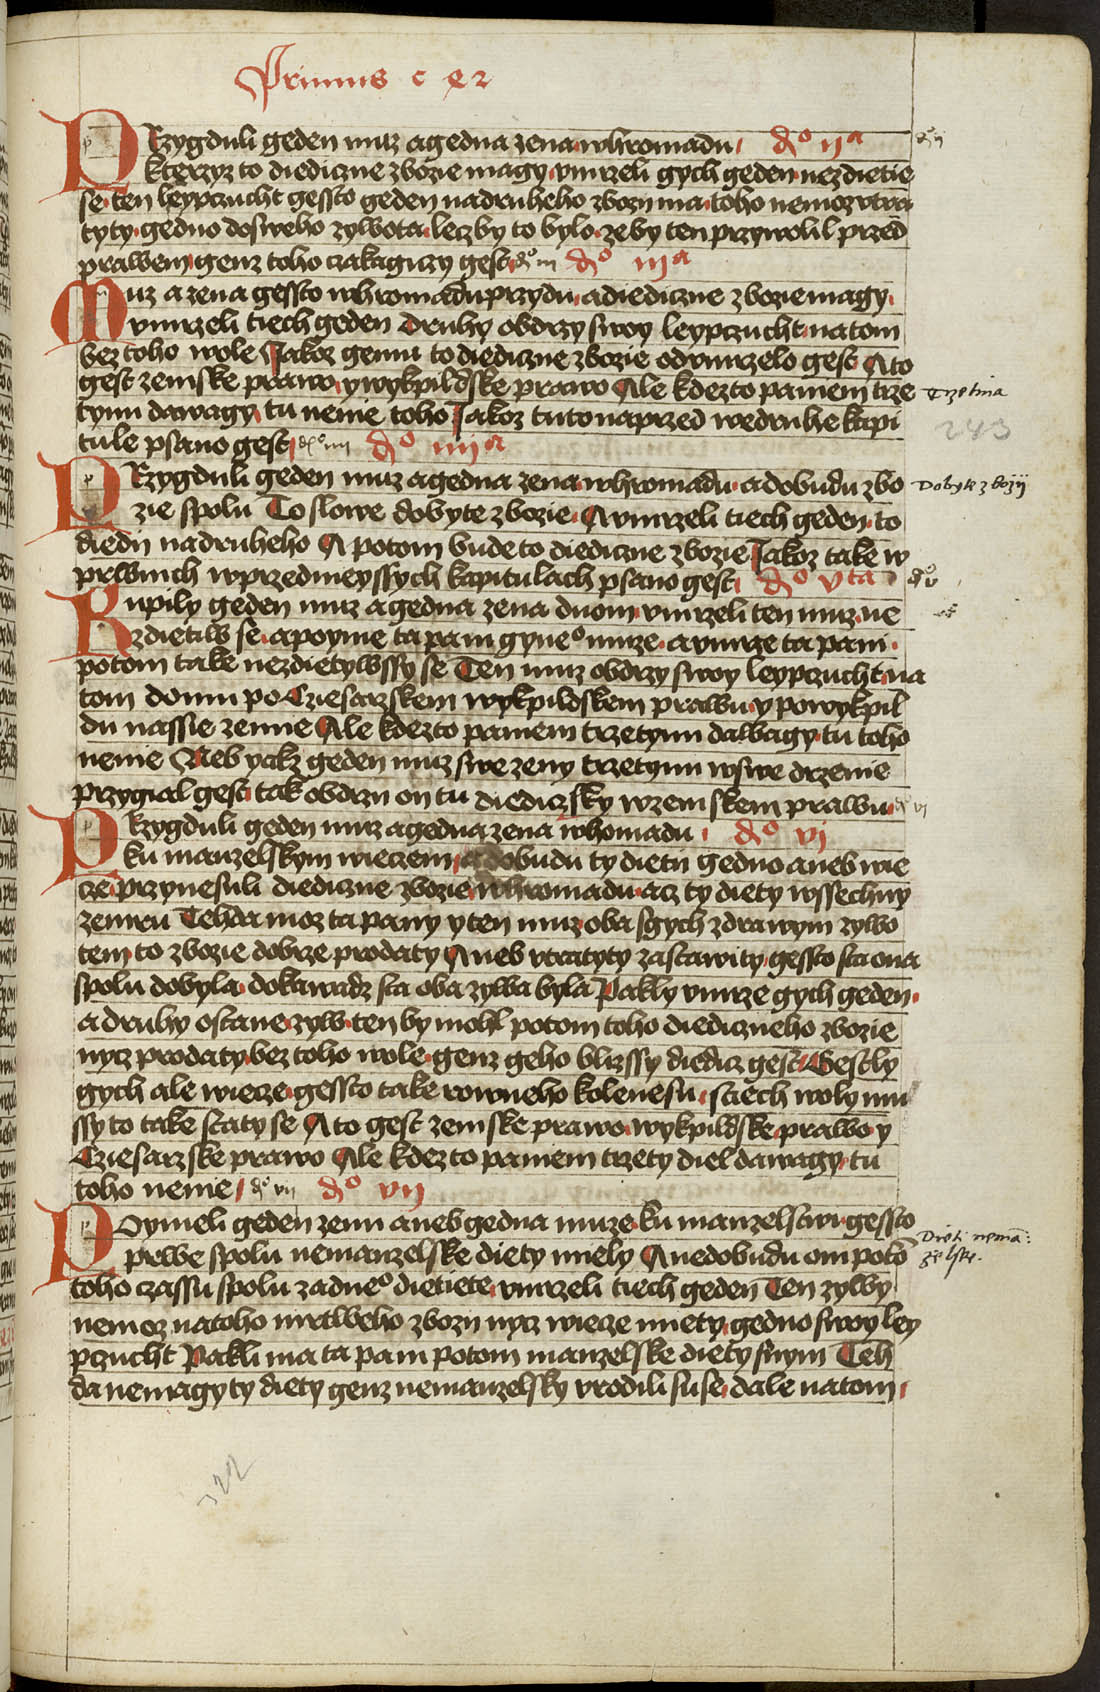 Primus c e 2
PRzygduli geden muz agedna zena whromadu dᵒ ijᵃ
kterzyz to diediczne zbozie magy vmrzeli gych geden nezdietie
se ten leypczucht gessto geden nadruheho zbozu ma toho nemoz vtra
tyty gedno dosweho zywota leczby to bylo zeby ten przywolil przed
prawem genz toho czakagiczy gest dᵒ iij dᵒ iijᵃ
Muz a zena gessto whromadu przydu adiediczne zbozie magy
vmrzeli tiech geden Druhy obdrzy swoy leypczucht natom
bez toho wole Jakoz gemu to diediczne zbozie odvmrzelo gest Ato
gest zemske prawo ywykpildske prawo Ale kdezto paniem trze
tynu dawagy tu nenie toho Jakoz tuto naprzed wedruhe kapi
tule psano gest dᵒ iiij dᵒ iiijᵃ
Trzetina
243
PRzygduli geden muz agedna zena whromadu adobudu zbo
zie spolu To slowe dobyte zbozie Avmrzeli tiech geden to
diedij nadruheho A potom bude to diediczne zbozie Jakoz take w
prwnich wprzedmeyssych kapitulach psano gest dᵒ vta
Dobyte zbozij
dᵒ v
Kupily geden muz agedna zena duom vmrzeli ten muz ne
zdietiw se apoyme ta pani gyneᵒ muze avmrze ta pani
potom take nezdietywssy se Ten muz obdrzy swoy leypczucht na
tom domu po Cziesarskem wykpildskem prawu y powykpil
du nassie zemie Ale kdezto paniem trzetynu dawagy tu toho
nenie Neb yakz geden muz swe zeny trzetynu wswe drzenie
przygial gest tak obdrzij on tu diediczsky wzemskem prawu dᵒ vi
Przygduli geden muz agedna zena whomadu dᵒ vi
ku manzelskym wieczem adobudu ty dietij gedno aneb wie
cze przynesuli diediczne zbozie whromadu acz ty diety wssechny
zemru Tehda moz ta pany y ten muz oba sgych zdrawym zywo
tem to zbozie dobrze prodaty Aneb vtratyty zastawity gessto sta ona
spolu dobyla dokawadz sta oba zywa byla Pakly vmrze gych geden
adruhy ostane zyw ten by mohl potom toho diediczneho zbozie
nycz prodaty bez toho wole genz geho blizssy diedicz gest Gestly
gych ale wiecze gessto take rowneho kolene su stiech woly mu
ssy to take staty se Ato gest zemske prawo wykpildske prawo y
Cziesarzske prawo Ale kdezto paniem trzety diel dawagy tu
toho nenie dᵒ vij dᵒ vij
Poymeli geden zenu aneb gedna muze ku manzelstwi gessto
prwe spolu nemanzelske diety miely Anedobudu oni potō
toho czassu spolu zadneᵒ dietiete vmrzeli tiech geden Ten zywy
nemoz natoho mrtweho zbozij nycz wiecze miety gedno swoy ley
pczucht Pakli ma ta pani potom manzelske diety snym Teh
da nemagy ty diety genz nemanzelsky vrodili su se dale natom
Dieti nemā:
zelske.